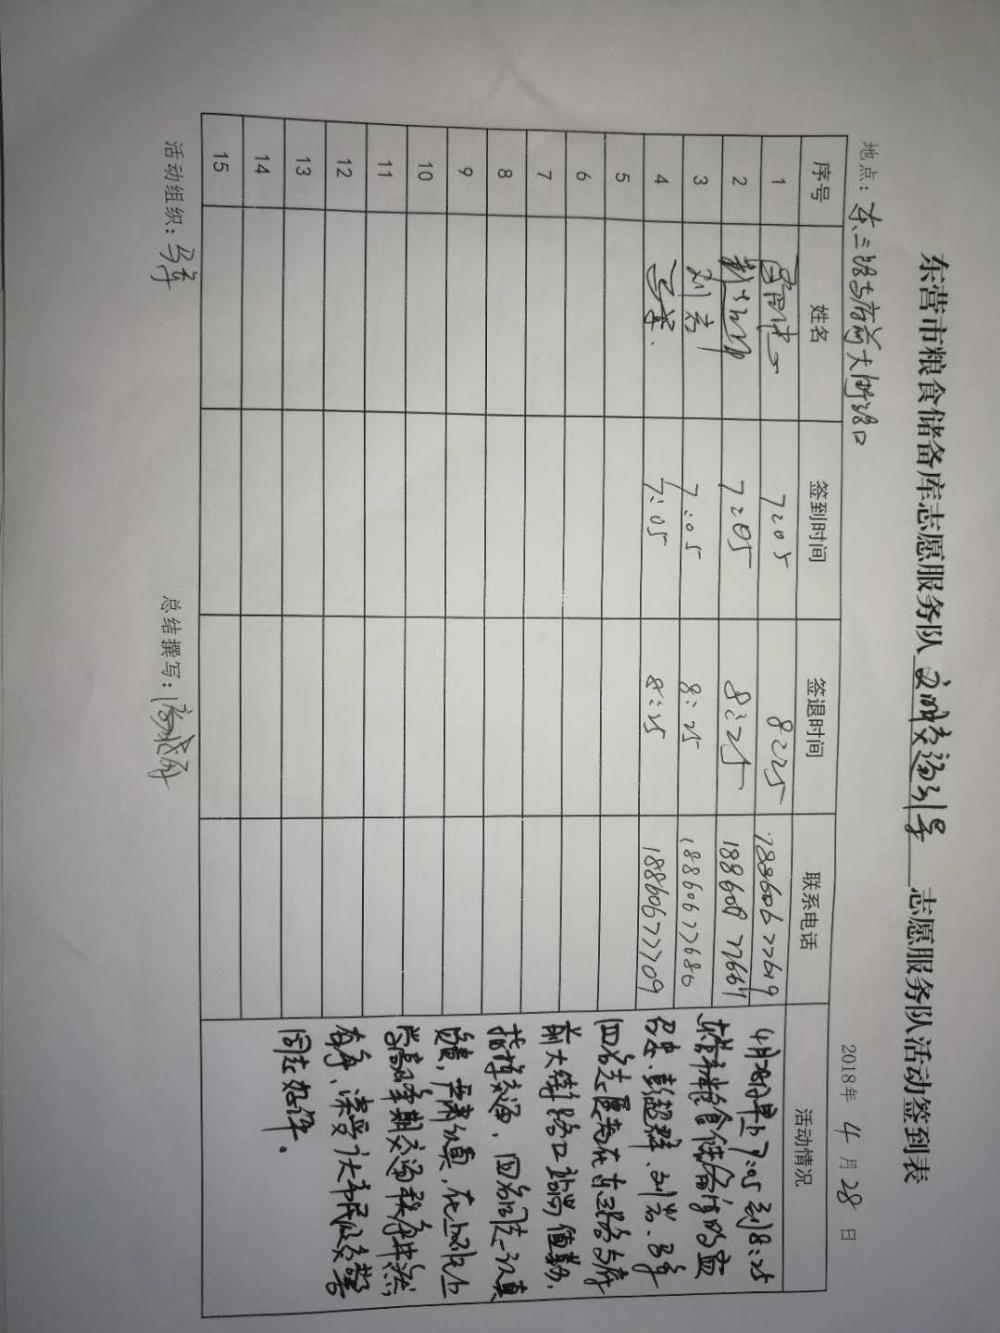 东营市粮食储备库志愿服务队 文明交通引导 志愿服务队活动签到表
地点：东二路与府前大街路口 2018年 4 月 28 日
序号 姓名 签到时间 签退时间 联系电话 活动情况
1 7:05 8:25 18860677619
2 7:05 8:25
3 刘岩 7:05 8:25 18860677680
4 马荣 7:05 8:25 18860677709
5
6
7
8
9
10
11
12
13
14
15
4月28日早上7:05到8:25
东营市粮食储备库的
彭超群、刘岩、马
四名志愿者在东二路与府
前大街路口站岗值勤，
指挥交通，四名同志认真
负责，严肃认真，在上班上
学高峰期交通秩序井然
有序，深受广大市民及交警
同志好评。
活动组织： 总结撰写：